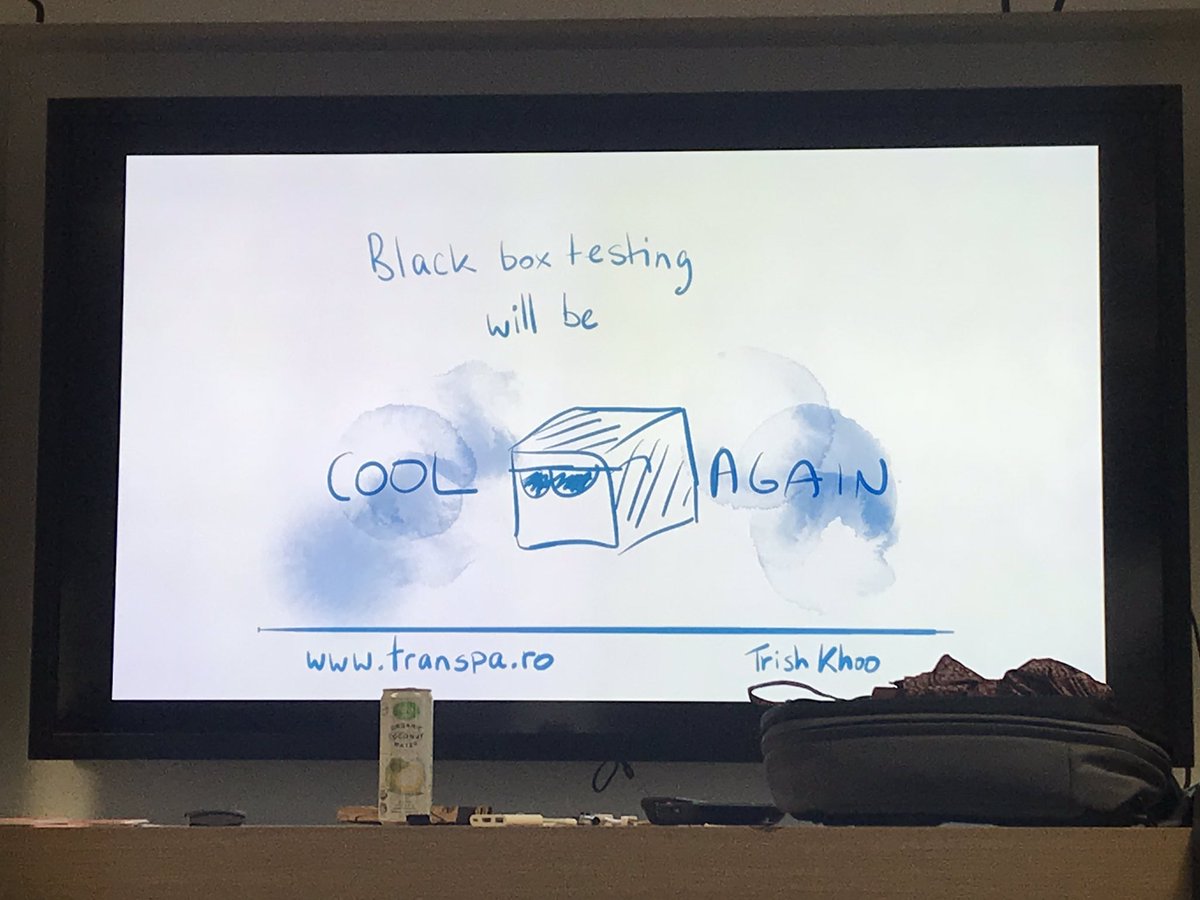 Black box testing
will be
COOL AGAIN
www.transpa.ro Trish Khoo
ORGANIC
COCONUT
WATER